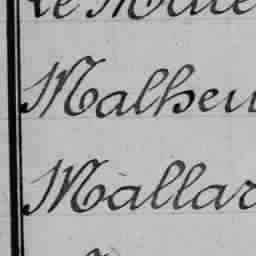 Le Maue
Malheu
Mallar